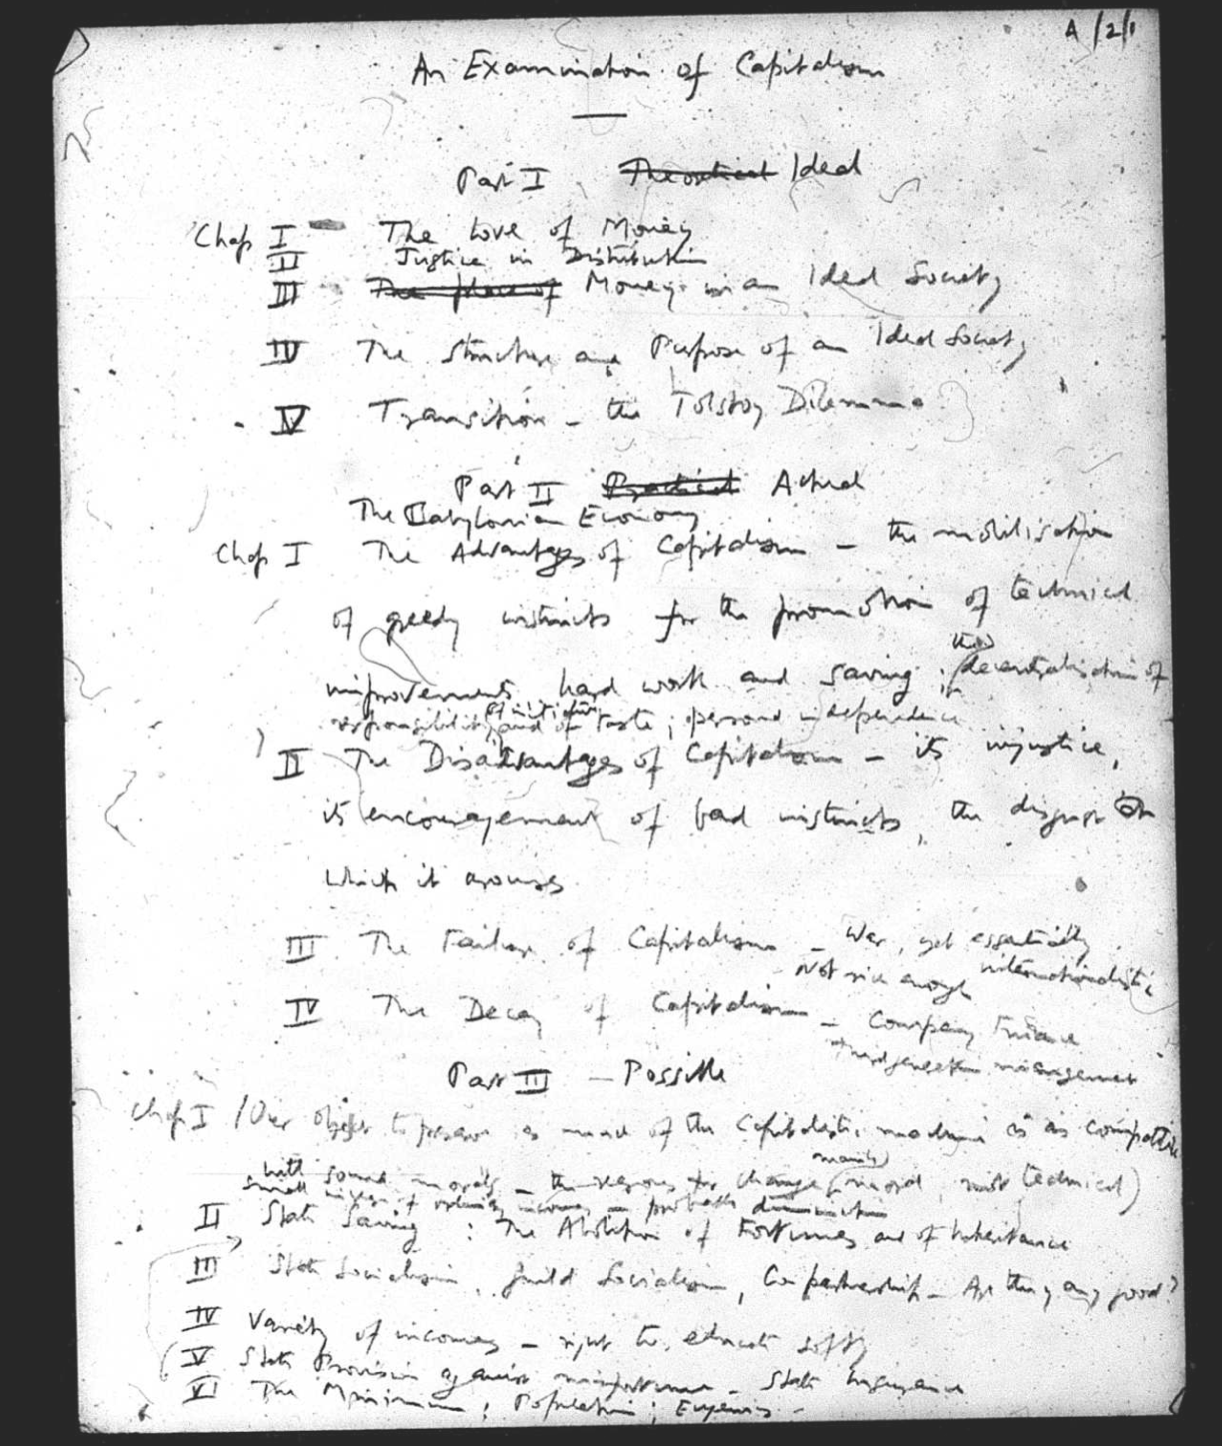 A/2/1
An Examination of Capitalism
Part I Theoretical Ideal
Chap I The Love of Money
II Justice in Distribution
III The place of Money in an Ideal Society
IV The Structure and Purpose of an Ideal Society
IV Transition – the Tolstoy Dilemma
Part II Practical Actual
The Babylonian Economy
Chap I The Advantages of Capitalism – the mobilisation
of greedy instincts for the promotion of technical
the
improvements, hard work and saving; decentralisation of
responsibility and of taste; personal independence
II The Disadvantages of Capitalism – its injustice,
its encouragement of bad instincts, the disgust
which it arouses
III The Failure of Capitalism – War, yet essentially
internationalistic
Not rich enough
IV The Decay of Capitalism – Company Finance
Third generation management
Part III – Possible
Chap I (Our object to preserve as much of the Capitalistic machine as is compatible
mainly
with sound morals – the reasons for change (moral, not technical)
small of ordinary incomes – probable diminution
II State Saving : The Abolition of Fortunes and of Inheritance
III State Socialism, Guild Socialism, Co-partnership – Are they any good?
IV Variety of incomes – right to educate
V State Provision against misfortune – State Insurance
VI The Minimum; Population; Eugenics –